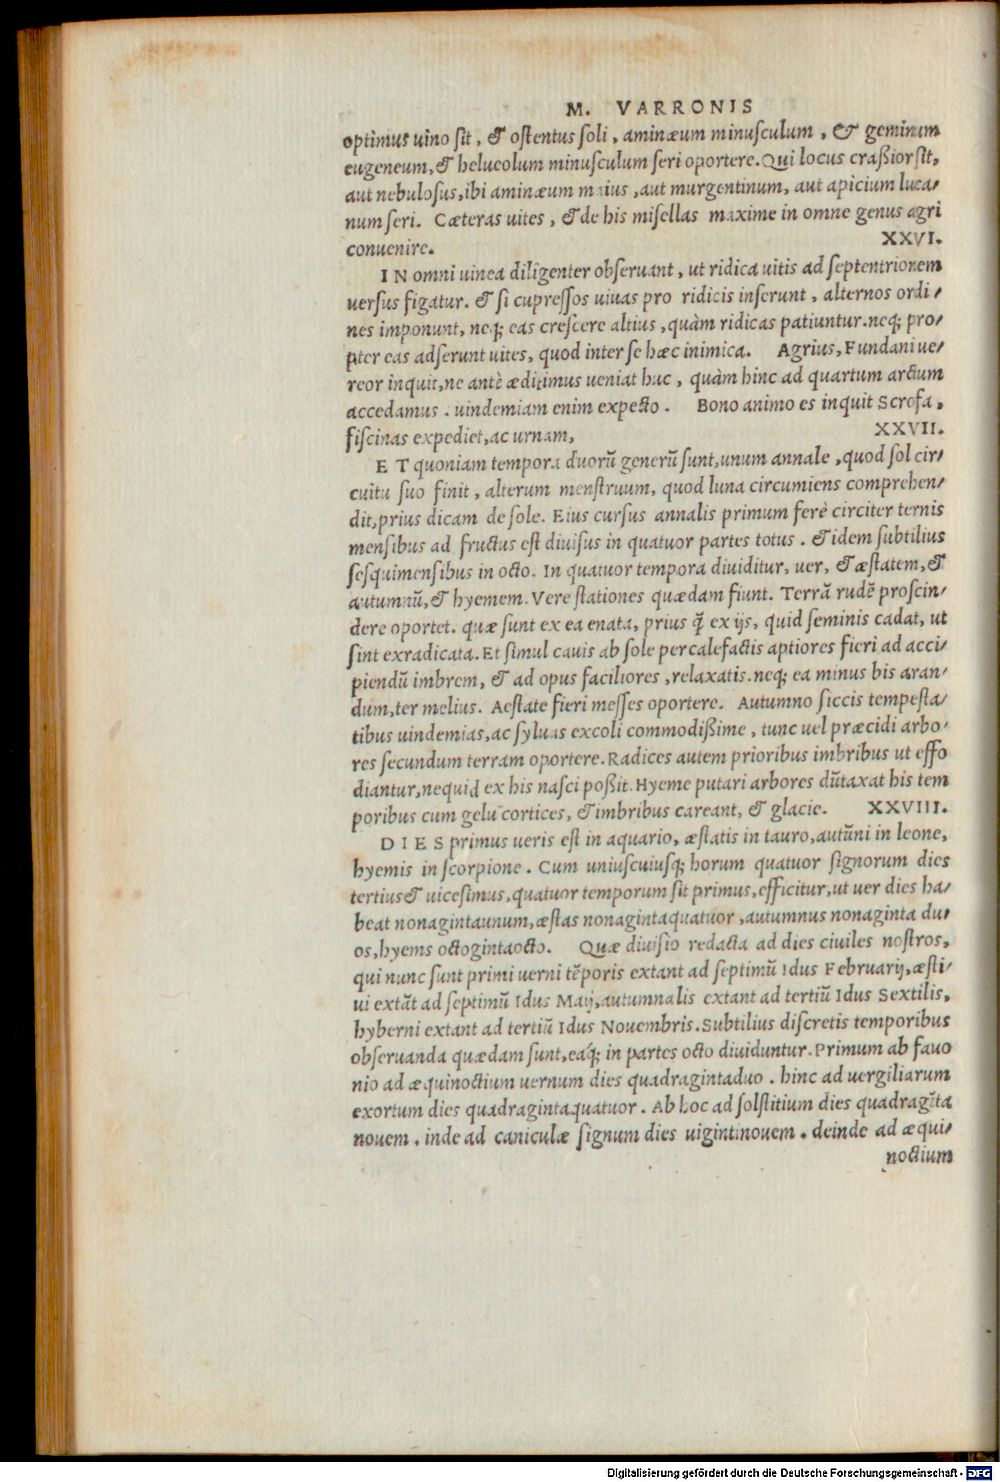 M. VARRONIS
optimus uino sit, & ostentus soli, aminæum minusculum, & geminum
eugeneum, & heluolum minusculum seri oportere. Qui locus craßior sit,
aut nebulosus, ibi aminæum maius, aut murgentinum, aut apicium luca/
num seri. Cæteras uites, & de his misellas maxime in omne genus agri
conuenire. XXVI.
IN omni uinea diligenter obseruant, ut ridica uitis ad septentrionem
uersus figatur. & si cupressos uiuas pro ridicis inserunt, alternos ordi/
nes imponunt, neq; eas crescere altius, quàm ridicas patiuntur. neq; pro/
pter eas adserunt uites, quod inter se hæc inimica. Agrius, Fundani ue/
reor inquit, ne antè æditimus ueniat huc, quàm hinc ad quartum arctum
accedamus. uindemiam enim expecto. Bono animo es inquit Scrofa,
fiscinas expediet, ac urnam, XXVII.
ET quoniam tempora duorū generū sunt, unum annale, quod sol cir/
cuitu suo finit, alterum menstruum, quod luna circumiens comprehen/
dit, prius dicam de sole. Eius cursus annalis primum ferè circiter ternis
mensibus ad fructus est diuisus in quatuor partes totus. & idem subtilius
sesquimensibus in octo. In quatuor tempora diuiditur, uer, & æstatem, &
autumnū, & hyemem. Vere stationes quædam fiunt. Terrā rudē proscin/
dere oportet. quæ sunt ex ea enata, prius q̄ ex ijs, quid seminis cadat, ut
sint exradicata. Et simul cauis ab sole percalefactis aptiores fieri ad acci/
piendū imbrem, & ad opus faciliores, relaxatis. neq; ea minus bis aran/
dum, ter melius. Aestate fieri messes oportere. Autumno siccis tempesta/
tibus uindemias, ac syluas excoli commodißime, tunc uel præcidi arbo/
res secundum terram oportere. Radices autem prioribus imbribus ut effo
diantur, nequid ex his nasci poßit. Hyeme putari arbores dūtaxat his tem
poribus cum gelu cortices, & imbribus careant, & glacie. XXVIII.
DIES primus ueris est in aquario, æstatis in tauro, autūni in leone,
hyemis in scorpione. Cum uniuscuiusq; horum quatuor signorum dies
tertius & uicesimus, quatuor temporum sit primus, efficitur, ut uer dies ha/
beat nonagintaunum, æstas nonagintaquatuor, autumnus nonaginta du/
os, hyems octogintaocto. Quæ diuisio redacta ad dies ciuiles nostros,
qui nunc sunt primi uerni tēporis extant ad septimū Idus Februarij, æsti/
ui extāt ad septimū Idus Maij, autumnalis extant ad tertiū Idus Sextilis,
hyberni extant ad tertiū Idus Nouembris. Subtilius discretis temporibus
obseruanda quædam sunt, eaq́; in partes octo diuiduntur. Primum ab fauo
nio ad æquinoctium uernum dies quadragintaduo. hinc ad uergiliarum
exortum dies quadragintaquatuor. Ab hoc ad solstitium dies quadragīta
nouem. inde ad caniculæ signum dies uigintinouem. deinde ad æqui/
noctium
Digitalisierung gefördert durch die Deutsche Forschungsgemeinschaft - DFG